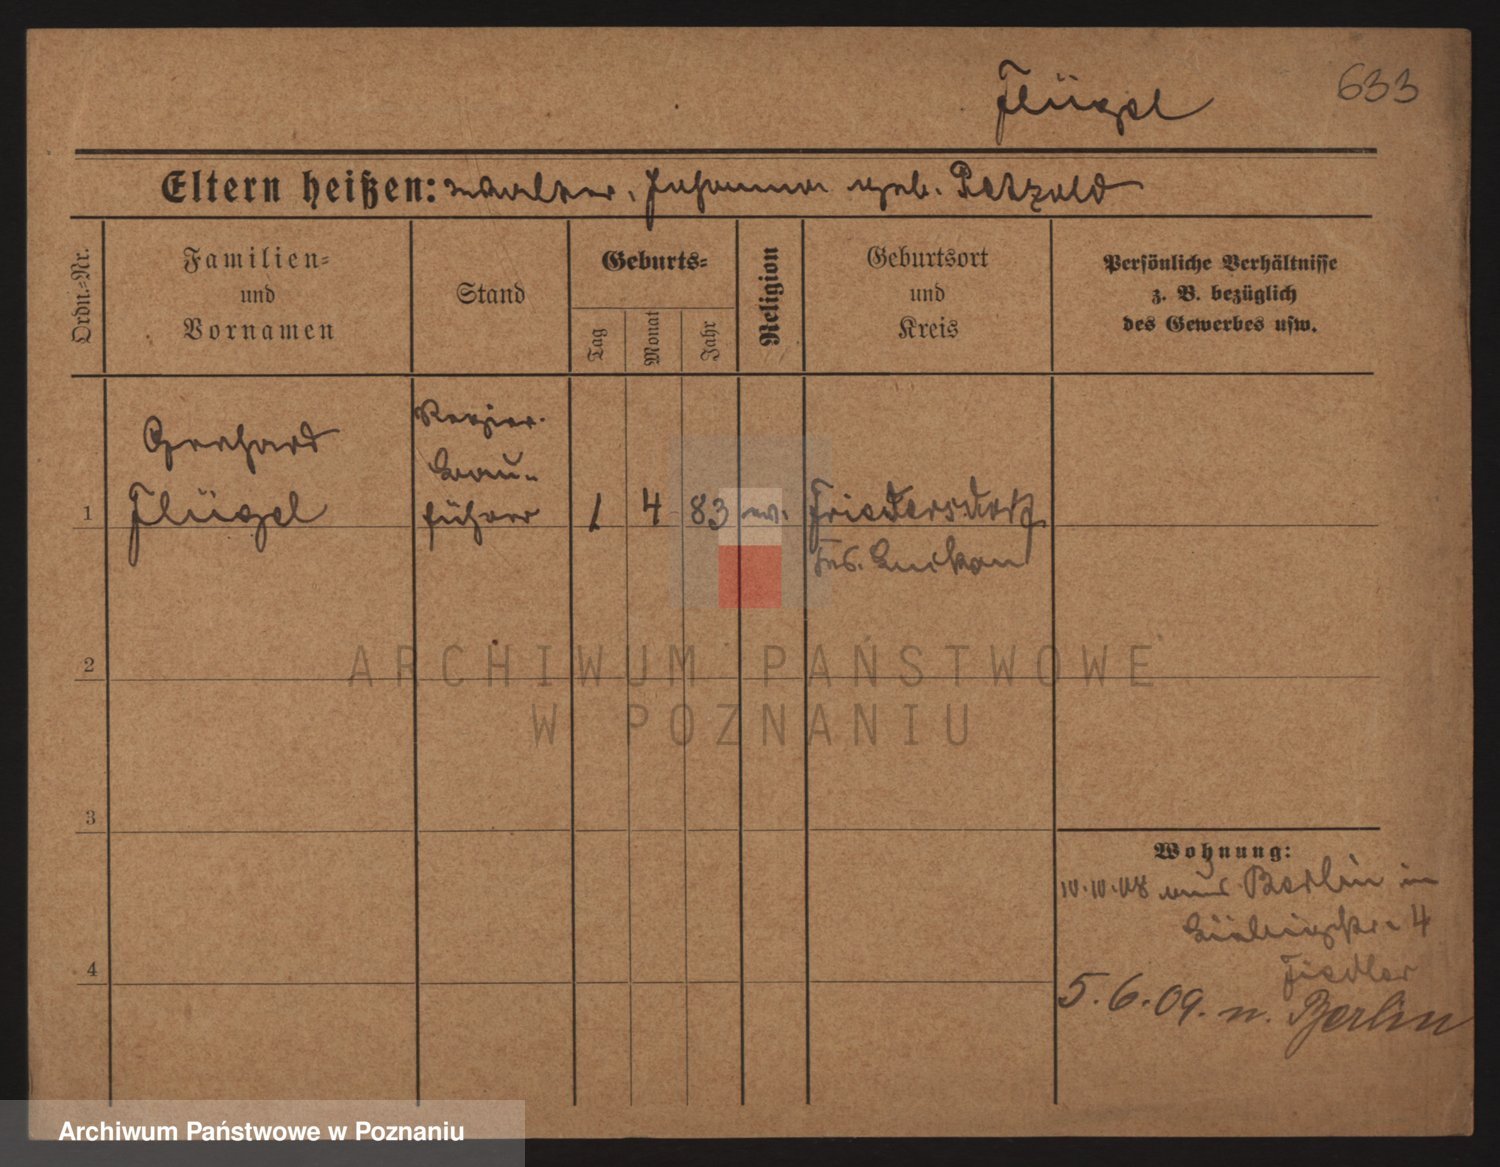 Flügel
633
Eltern heißen: Walter, Johanna geb. Petzold
Ordn.-Nr.
Familien-
und
Vornamen
Stand
Geburts-
Tag
Monat
Jahr
Religion
Geburtsort
und
Kreis
Persönliche Verhältnisse
z. B. bezüglich
des Gewerbes usw.
Gerhard
Flügel
Regier.
Bau-
führer
1
1 4 83 ev.
Friedersdorf
Luckau
2
3
4
ARCHIWUM PAŃSTWOWE
W POZNANIU
Wohnung:
10.10.08 aus Berlin in
4
Fiedler
5.6.09. n. Berlin
Archiwum Państwowe w Poznaniu